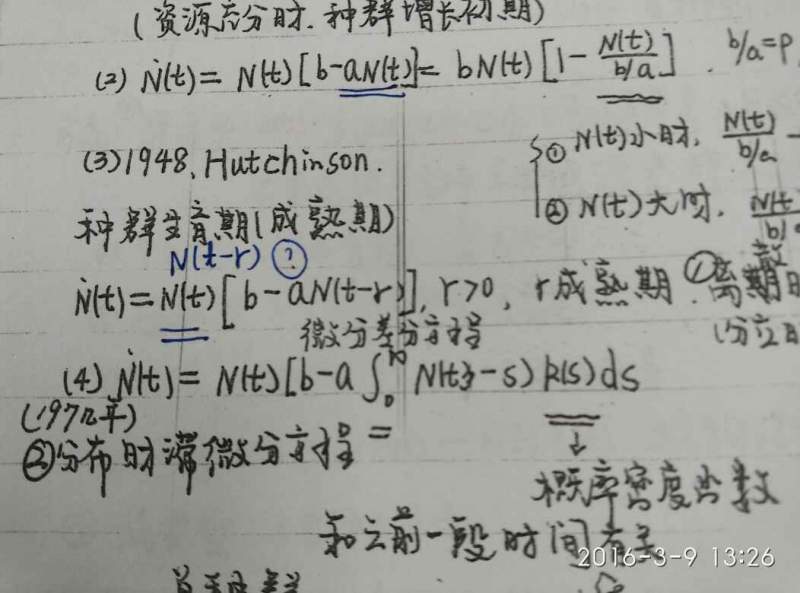 (资源充分时.种群增长初期)
(2) Ṅ(t) = N(t)[b-aN(t)] = bN(t)[1-N(t)/(b/a)]. b/a=P
(3) 1948, Hutchinson.
① N(t)小时, N(t)/(b/a)
种群生育期(成熟期)
② N(t)大时, N(t
N(t-r) ?
Ṅ(t) = N(t)[b-aN(t-r)], r>0, r成熟期. ①离散时
微分差分方程
(分立
(4) Ṅ(t) = N(t)[b-a∫₀ N(t-s)k(s)ds
(197几年)
②分布时滞微分方程 =
↓
概率密度函数
和之前一段时间有关
2016-3-9 13:26